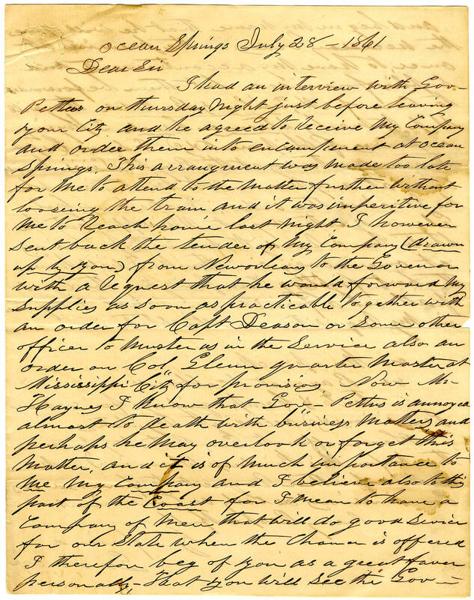 Ocean Springs July 28 - 1861
Dear Sir
I had an interview with Gov-
Pettus on thursday Night just before leaving
your City and he agreed to receive My Company
and order them into encampment at ocean
Springs. This arrangment was made too late
for Me to attend to the Matter further without
loosing the train and it was imperitive for
Me to Reach home last night I however
sent back the tender of My Company (drawn
up by you) from Neworleans to the Govenor
with a request that he would forward My
Supplies as soon as practicable together with
an order for Capt Deason or some other
officer to Muster us in the Service also an
order on Col. Glenn quarter Master at
Mississippi City for provisions Now Mr
Haynes I know that Gov Pettus is annoyed
almost to death with "business Matters" and
perhaps he May overlook or forget this
Matter, and it is of Much importance to
Me My Company and I believe also to this
part of the Coast for I mean to have a
Company of Men that will do good Service
for our State when the Chance is offered
I therefor beg of you as a great favor
personally, That you will see the Gov-